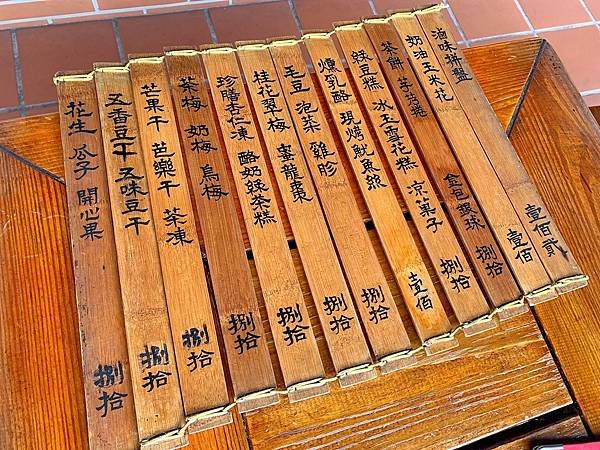 滷味拼盤 壹佰貳
奶油玉米花 壹佰
茶餅 金包銀球 捌拾
綠豆糕 冰玉雪花糕 涼菓子 捌拾
燻乳酪 現烤魷魚絲 壹佰
毛豆 泡菜 雞胗 捌拾
桂花翠梅 蜜龍棗 捌拾
珍膳杏仁凍 酪奶綠茶糕 捌拾
茶梅 奶梅 烏梅 捌拾
芒果干 芭樂干 茶凍 捌拾
五香豆干 五味豆干 捌拾
花生 瓜子 開心果 捌拾